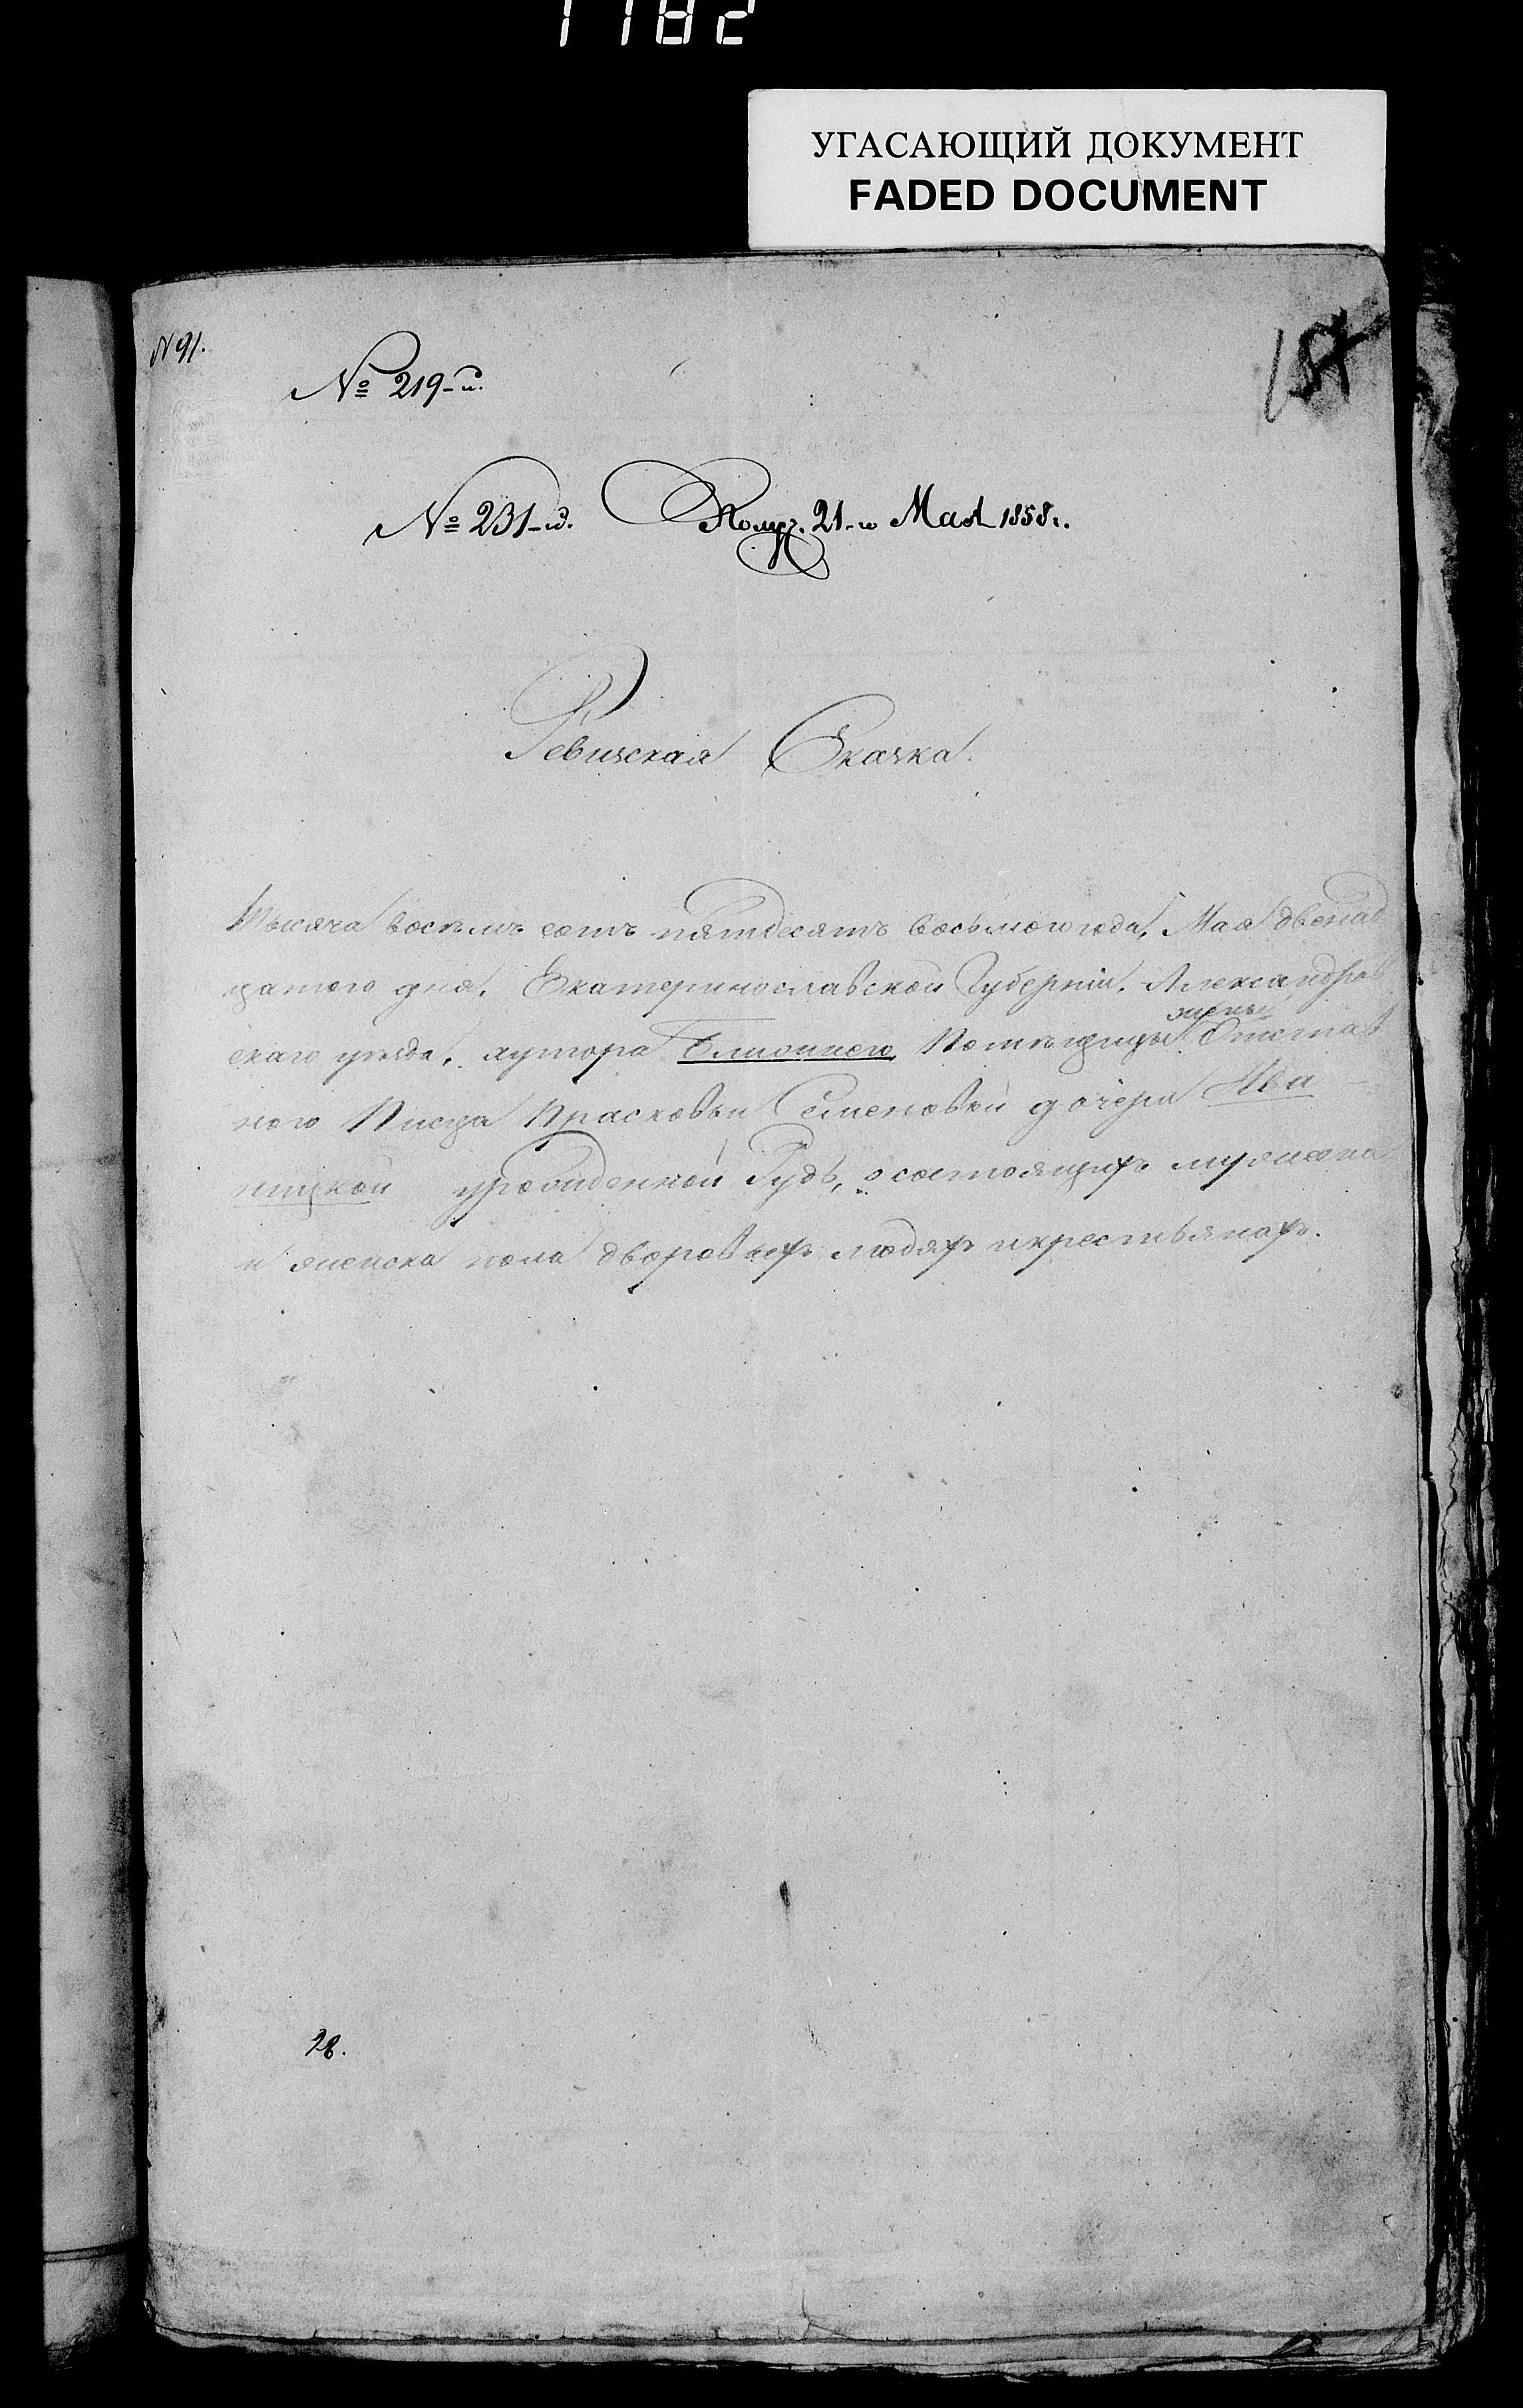 1182
УГАСАЮЩИЙ ДОКУМЕНТ
FADED DOCUMENT
N 91.
№ 219-й.
№ 231-й. Получ. 21-го Мая 1858 г.
Ревизская Сказка.
Тысяча восемь сотъ пятдесятъ восьмого года, Мая двенад
цатого дня, Екатеринославской Губерніи, Александров
скаго уезда, хутора Помѣщицы жены Отстав
ного Писца Прасковьи Семеновой дочери Ива
ницкой урожденной Гудъ, о состоящихъ мужеска
и женска пола дворовыхъ людяхъ и крестьянахъ.
28.